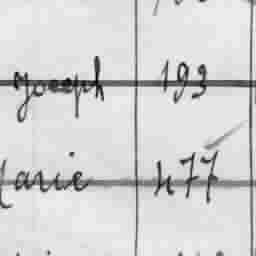 Joseph 193
Marie 477